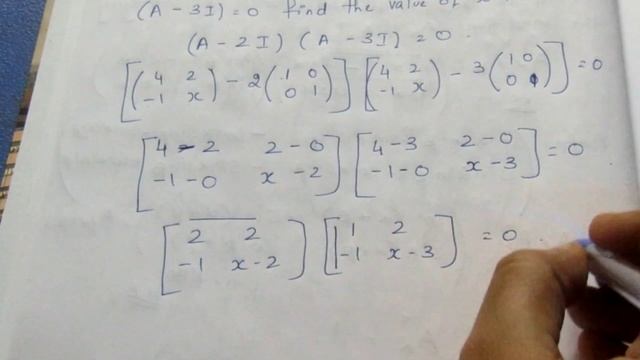 (A - 3I) = 0 find the value of x.
(A - 2I) (A - 3I) = 0.
[(4 2 -1 x) - 2(1 0 0 1)] [(4 2 -1 x) - 3(1 0 0 1)] = 0
[4 - 2 2 - 0 -1 - 0 x - 2] [4 - 3 2 - 0 -1 - 0 x - 3] = 0
[2 2 -1 x - 2] [1 2 -1 x - 3] = 0